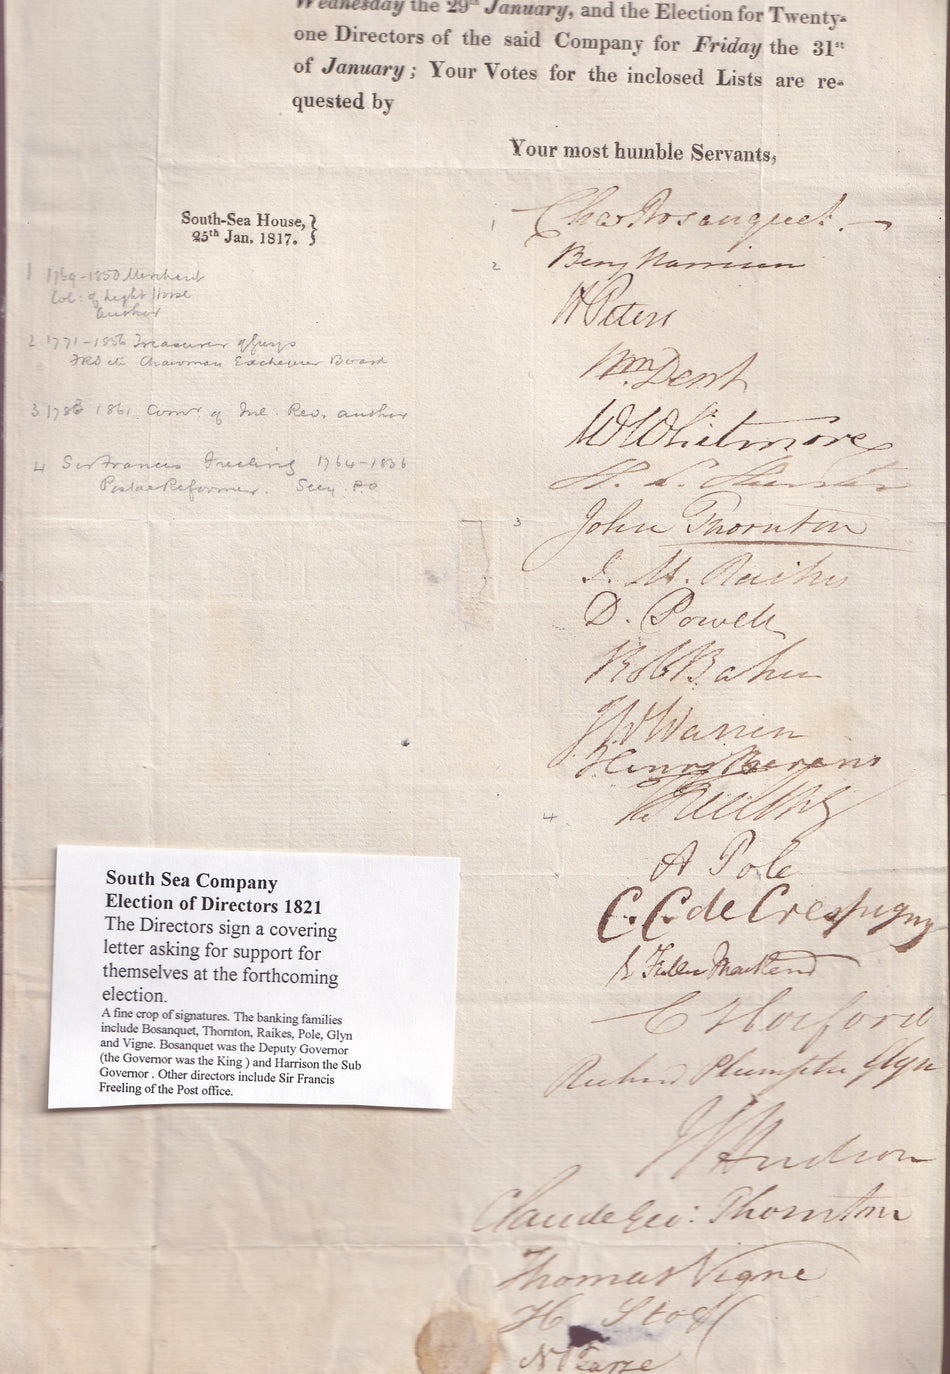 Wednesday the 29th January, and the Election for Twenty-
one Directors of the said Company for Friday the 31st
of January; Your Votes for the inclosed Lists are re-
quested by
Your most humble Servants,
South-Sea House,
25th Jan. 1817.
1 1769-1850 Merchant
Col: of Light Horse
author
2 1771-1856 Treasurer of Guys
FRS etc Chairman Exchequer Board
3 1783 1861. Comr of Inl. Rev. author
4 Sir Francis Freeling 1764-1836
Postal Reformer. Secy. P.O
1 Chas Bosanquet.
2 Benj Harrison
H Peters
Wm. Dent
W Whitmore
3 John Thornton
D. Powell
J W Warren
Henry Berens
4 F Freeling
A Pole
C. C. de Crespigny
Fuller Maitland
C Horford
Richard Plumptre Glyn
Hudson
Claude Geo: Thornton
Thomas Vigne
H
N Pearse
South Sea Company
Election of Directors 1821
The Directors sign a covering
letter asking for support for
themselves at the forthcoming
election.
A fine crop of signatures. The banking families
include Bosanquet, Thornton, Raikes, Pole, Glyn
and Vigne. Bosanquet was the Deputy Governor
(the Governor was the King ) and Harrison the Sub
Governor . Other directors include Sir Francis
Freeling of the Post office.